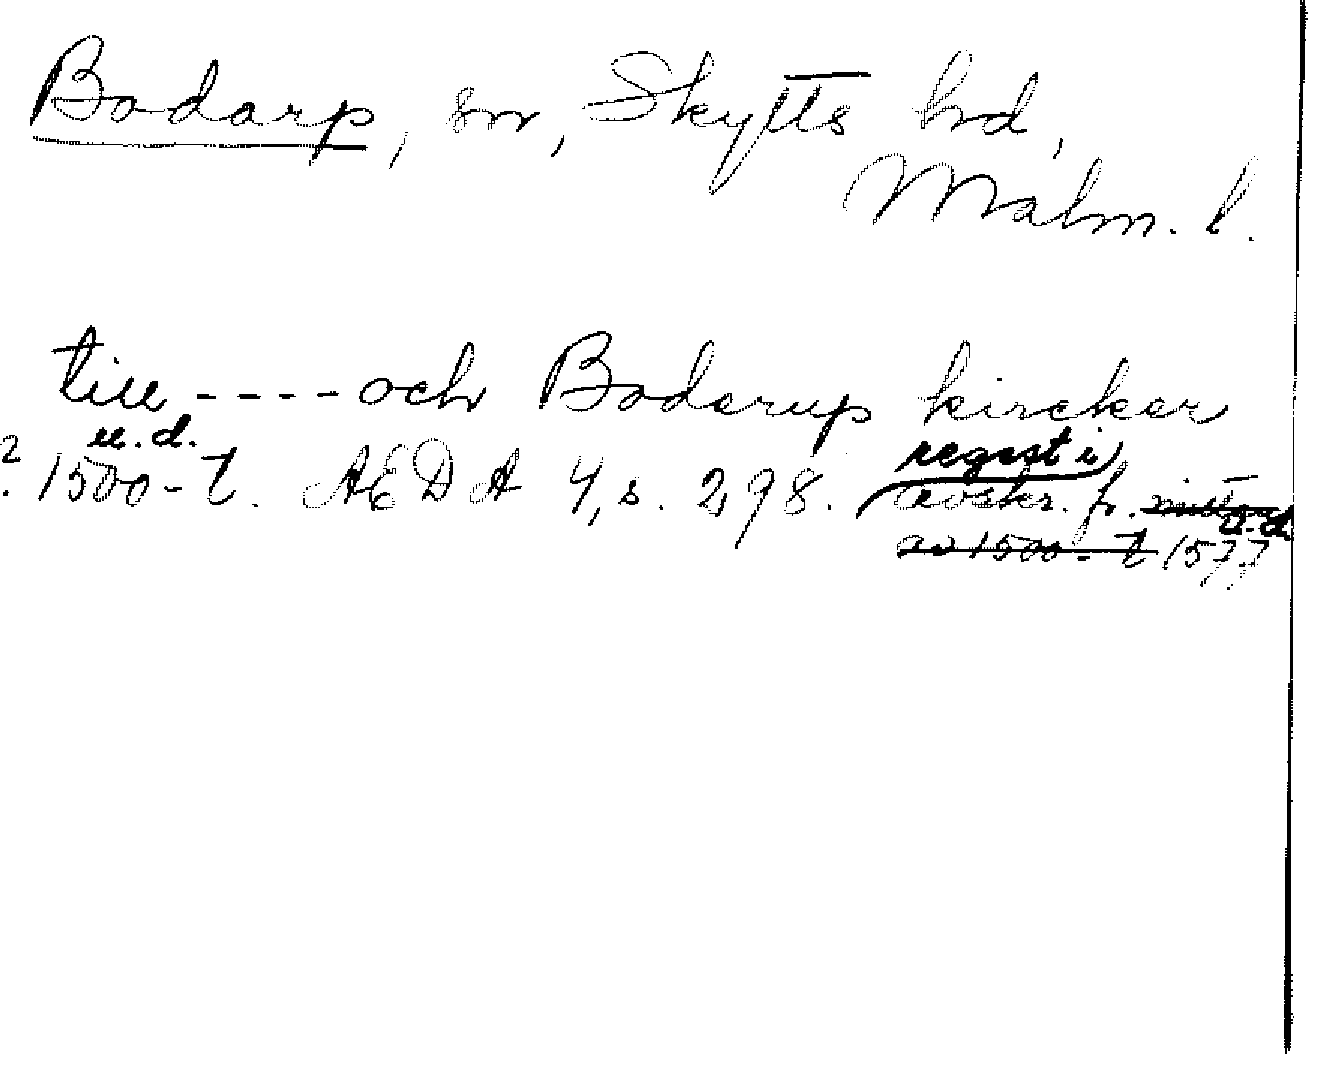 Bodarp, sn, Skytts hd,
Malm. l.
till ---- och Boderup kircker
u.d. regest i
1500-t. AEDA 4, s. 298. avskr. fr.
u.d.
av 1500-t 1577